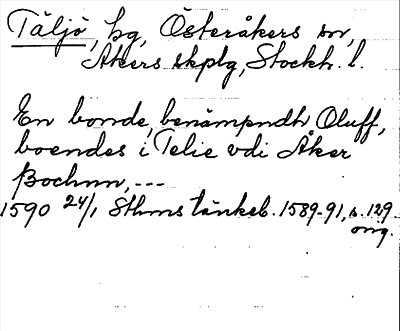 Täljö, hg, Österåkers sn,
Åkers skplg, Stockh. l.
En bonde, benämpndh Oluff,
boendes i Telie vdi Åker
Sochnn, ---
1590 24/1 Sthms tänkeb. 1589-91, s. 129
orig.